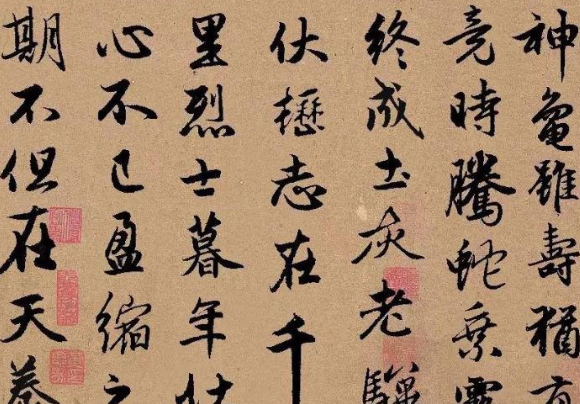 神龜雖壽猶有
竟時騰蛇乘霧
終成土灰老驥
伏櫪志在千
里烈士暮年壮
心不已盈縮之
期不但在天養